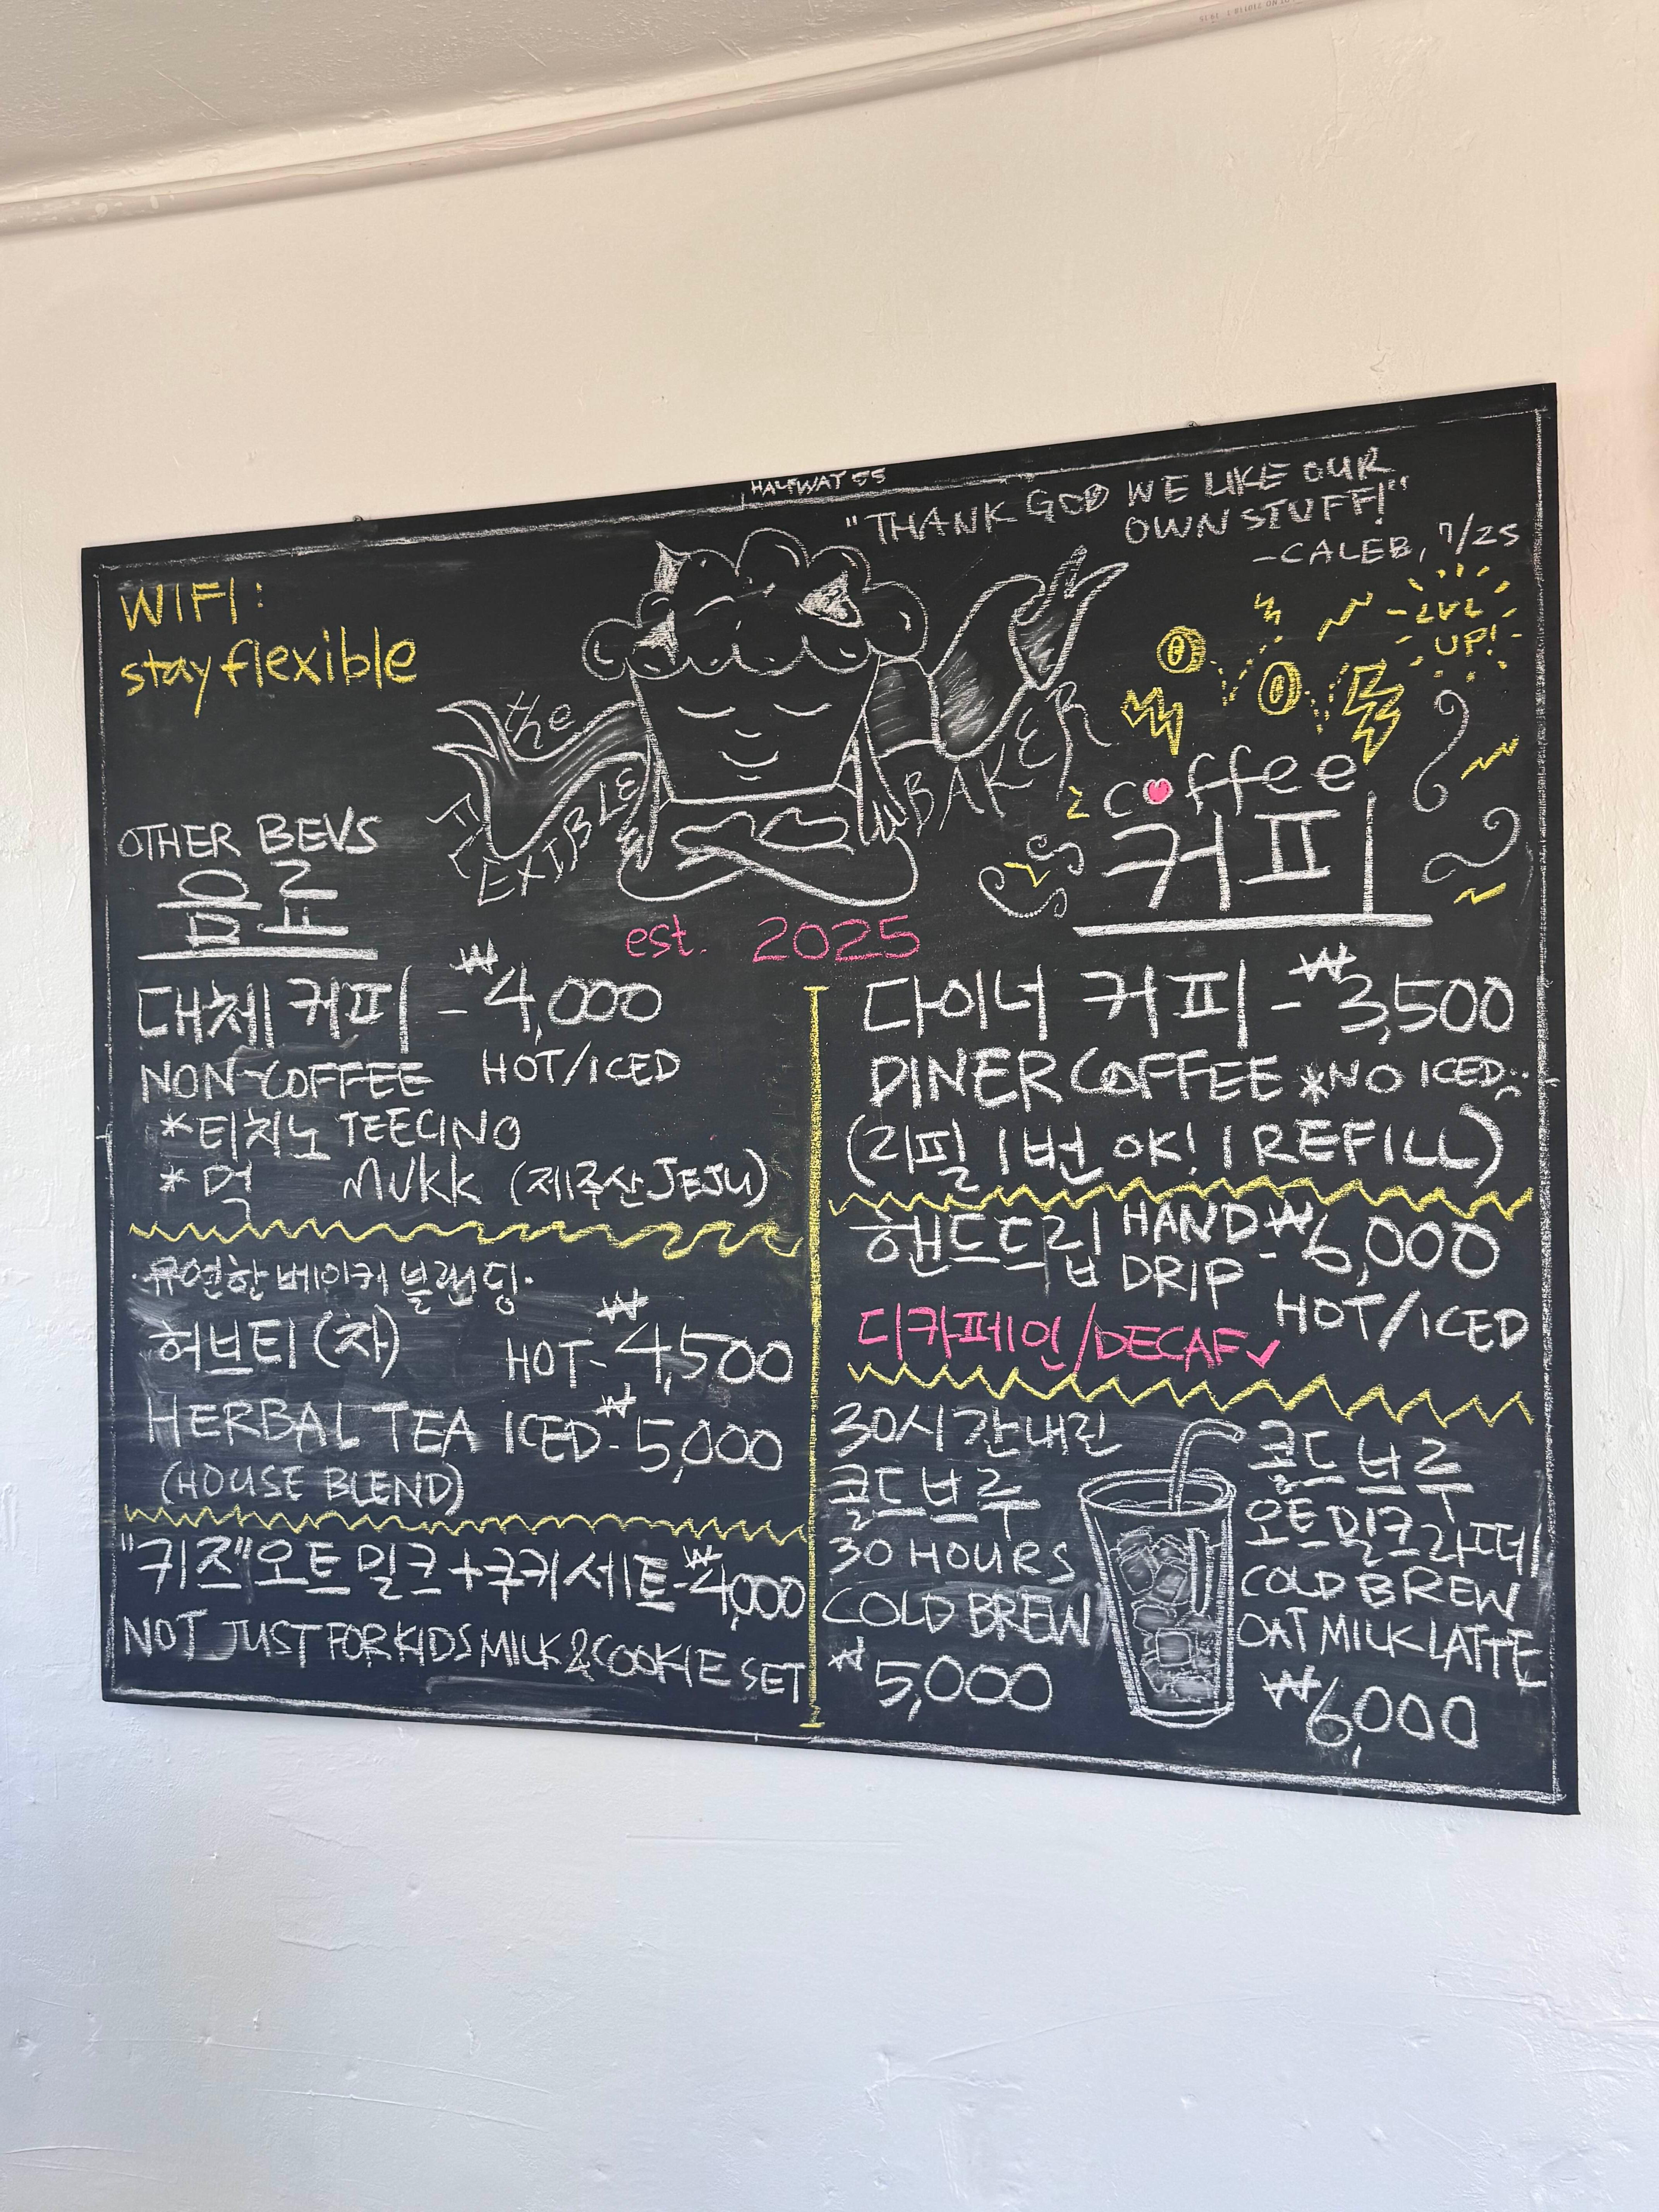 HALFWAY 55
"THANK GOD WE LIKE OUR
OWN STUFF!"
-CALEB, 7/25
WIFI:
stayflexible
LVL
UP!
the
FLEXIBLE
BAKER
est. 2025
OTHER BEVS
음료
대체 커피 - ₩4,000
NON-COFFEE HOT/ICED
*티치노 TEECINO
*먹 MUKK (제주산 JEJU)
·유연한 베이커 블랜딩·
허브티 (차) HOT - ₩4,500
HERBAL TEA ICED - ₩5,000
(HOUSE BLEND)
"키즈" 오트밀크 + 쿠키 세트 - ₩4,000
NOT JUST FOR KIDS MILK & COOKIE SET
coffee
커피
다이너 커피 - ₩3,500
DINER COFFEE *NO ICED
(리필 1번 OK! 1 REFILL)
핸드드립 HAND DRIP - ₩6,000
HOT/ICED
디카페인/DECAF✓
30시간 내린
콜드브루
30 HOURS
COLD BREW
₩5,000
콜드브루
오트밀크라떼
COLD BREW
OAT MILK LATTE
₩6,000